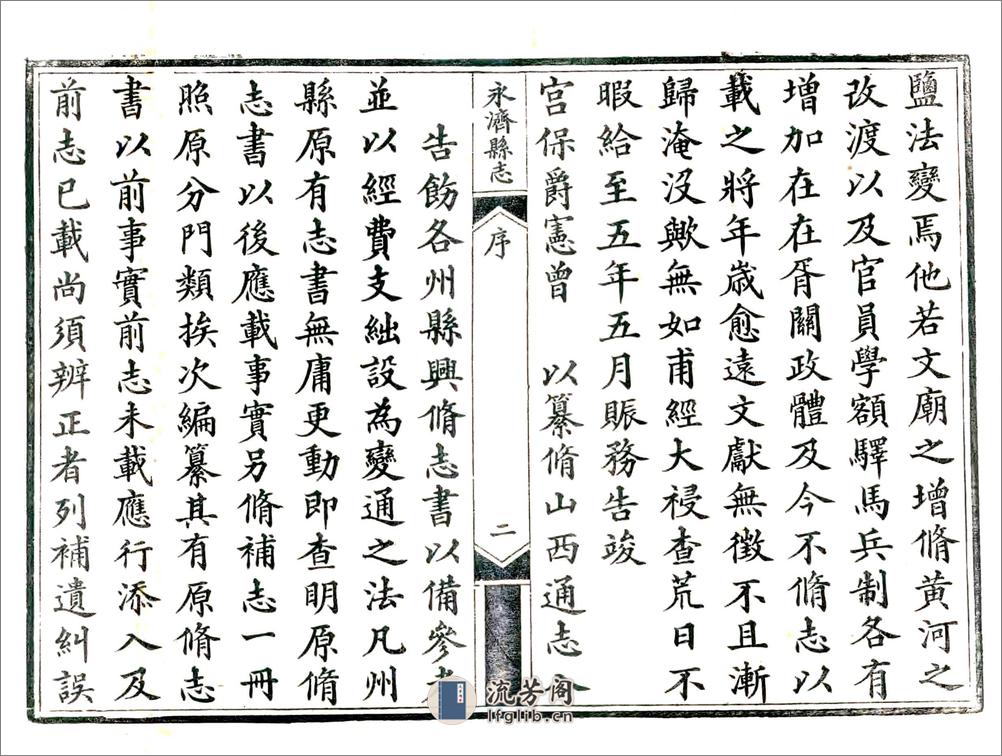 鹽法變焉他若文廟之增脩黃河之
改渡以及官員學額驛馬兵制各有
增加在在胥關政體及今不脩志以
載之將年歲愈遠文獻無徵不且漸
歸淹沒歟無如甫經大祲查荒日不
暇給至五年五月賑務告竣
宮保爵憲曾　以纂脩山西通志
永濟縣志　序　二
告飭各州縣興脩志書以備參考
並以經費支絀設為變通之法凡州
縣原有志書無庸更動即查明原脩
志書以後應載事實另脩補志一冊
照原分門類挨次編纂其有原脩志
書以前事實前志未載應行添入及
前志已載尚須辨正者列補遺糾誤
流芳阁
lfglib.cn